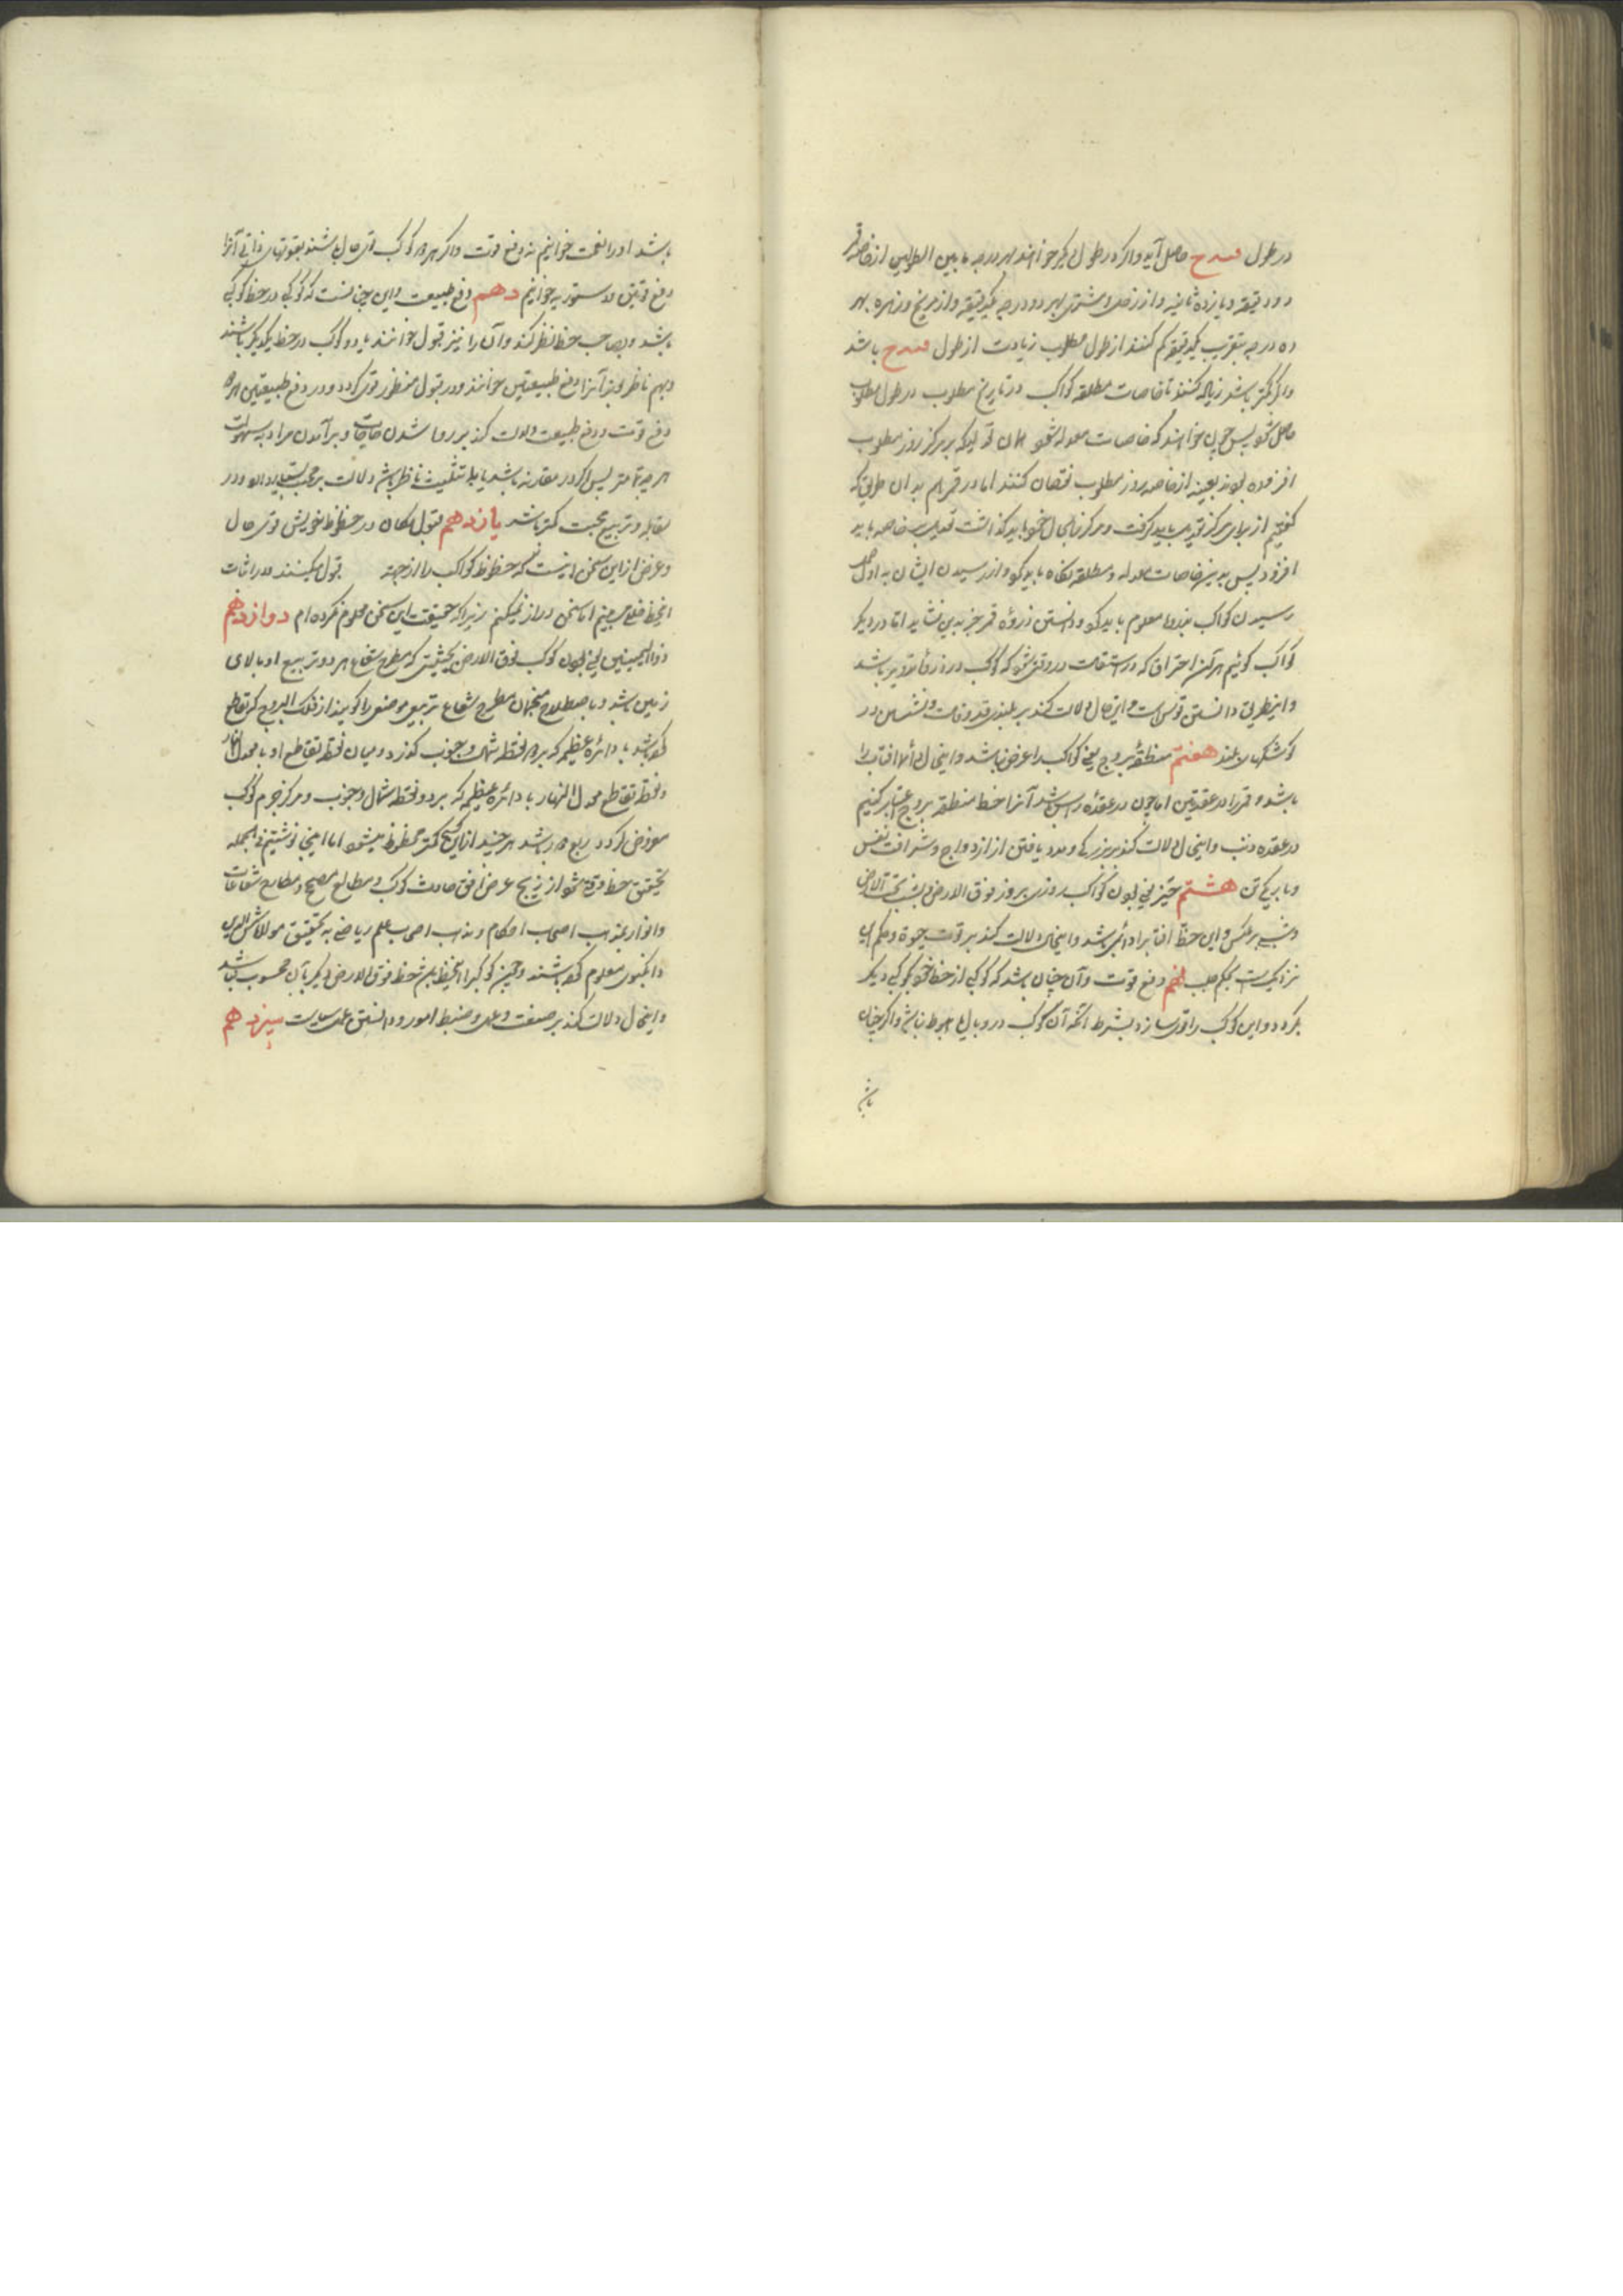 در طول فسدح حاصل آید و اگر در طول دیگر خواهند بهر درجه ما بین الطولین از خاصه قمر
دو دقیقه و یازده ثانیه و از زحل و مشتری بهر دو درجه یکدقیقه و از مریخ و زهره بهر
ده درجه بتقریب یکدقیقه کم کنند از طول مطلوب زیادت از طول فسدح باشد
و اگر کمتر باشد زیاده کنند تا خاصات مطلقه کواکب در تاریخ مطلوب در طول مطلوب
حاصل شود پس چون خواهند که خاصات معدله شود همان تعدیل که بر مرکز روز مطلوب
افزوده بودند بعینه از خاصه روز مطلوب نقصان کنند اما در قمر هم بدان طریق که
گفتیم از برای مرکز تعدیل باید گرفت و مرکز بحال خود باید گذاشت تعدیل بر خاصه باید
افزود پس بدین خاصات معدله و مطلقه نگاه باید کرد و از رسیدن ایشان به اول حمل
رسیدن کواکب بذروها معلوم باید کرد و دانستن ذروه قمر جز بدین نشاید اما در دیگر
کواکب گوئیم هر آن احتراق که در استقامت در وقتی شود که کوکب در ذروه تدویر باشد
و اینطریق دانستن قوس است و این حال دلالت کند بر بلندی قدر و قامت و نشستن در
کوشکهای بلند هفتم منطقه بروج یعنی کواکب را عرض نباشد و اینحال دائما افتاب را
باشد و قمر را در عقدتین اما چون در عقده راس باشد آنرا خط منطقه بروج اعتبار کنیم
در عقده ذنب و اینحال دلالت کند بر بزرگی و مدد یافتن از ازدواج و شرافت نفس
و باریکی تن هشتم حیز یعنی بودن کواکب روزی بروز فوق الارض و بشب تحت الارض
و شبی بر عکس و این حظ افتاب را دائم باشد و اینحال دلالت کند بر قوت حیوة و حکم این
نزدیکست بحکم حلب نهم دفع قوت و آن چنان باشد که کوکبی از حظ خود بکوکبی دیگر
نگرد و این کوکب را قوی سازد بشرط آنکه آن کوکب در وبال یا هبوط نباشد و اگر چنان
باشد
باشد او را نعمت خوانیم نه دفع قوت و اگر هر دو کوکب قوی حال باشند بقوتهای ذاتی آنرا
دفع قوتین و دستوریه خوانیم دهم دفع طبیعت و این چنانست که کوکبی در حظ کوکبی
باشد و بصاحب حظ نظر کند و آن را نیز قبول خوانند یا دو کوکب در حظ یکدیگر باشند
و بهم ناظر بوند آنرا دفع طبیعتین خوانند و در قبول منظور قوی گردد و در دفع طبیعتین هر دو
دفع قوت و دفع طبیعت دلالت کند بر روا شدن حاجات و برآمدن مراد به سهولت
هر چه تمامتر پس اگر در مقارنه باشد یا بتثلیث ناظر باشد دلالت بر محبت بسیار بود و در
مقابله و تربیع محبت کمتر باشد یازدهم قبول مکان در حظوظ خویش قوی حال
و غرض از این سخن اینست که حظوظ کواکب را از جهته قبول میکنند و در اثبات
اینحظ خللی می بینم اما سخن دراز نمیکنم زیرا که حقیقت این سخن معلوم نکرده ام دوازدهم
ذوالیمینین یعنی بودن کوکب فوق الارض بحیثیتی که مطرح شعاع هر دو تربیع او بالای
زمین باشد و باصطلاح منجمان مطرح شعاع تربیعی موضعی را گویند از فلک البروج که تقاطع
کرده باشد با دائره عظیمه که بر دو نقطه شمال و جنوب گذرد و میان نقطه تقاطع او با معدل النهار
و نقطه تقاطع معدل النهار با دائره عظیمه که بر دو نقطه شمال و جنوب و مرکز جرم کوکب
مفروض گذرد ربع دور باشد هر چند از این شرح کمتر محظوظ میشود اما اینجا نوشتیم فی الجمله
تحقیق حظ وقوة شود از زیج عرض افق حادث کوکب و مطالع مصحح و مطارح شعاعات
و انوار بمذهب اصحاب احکام و مذهب اصحاب علم ریاضی به تحقیق مولانا شمس الدین
وابکنوی معلوم کرده باشند و چنین کوکب را اینحظ بهم خط فوق الارض دیگر بآن محسوب نباشد
و اینحال دلالت کند بر صنعت و عمل و ضبط امور و دانستن عمل سیاست سیزدهم